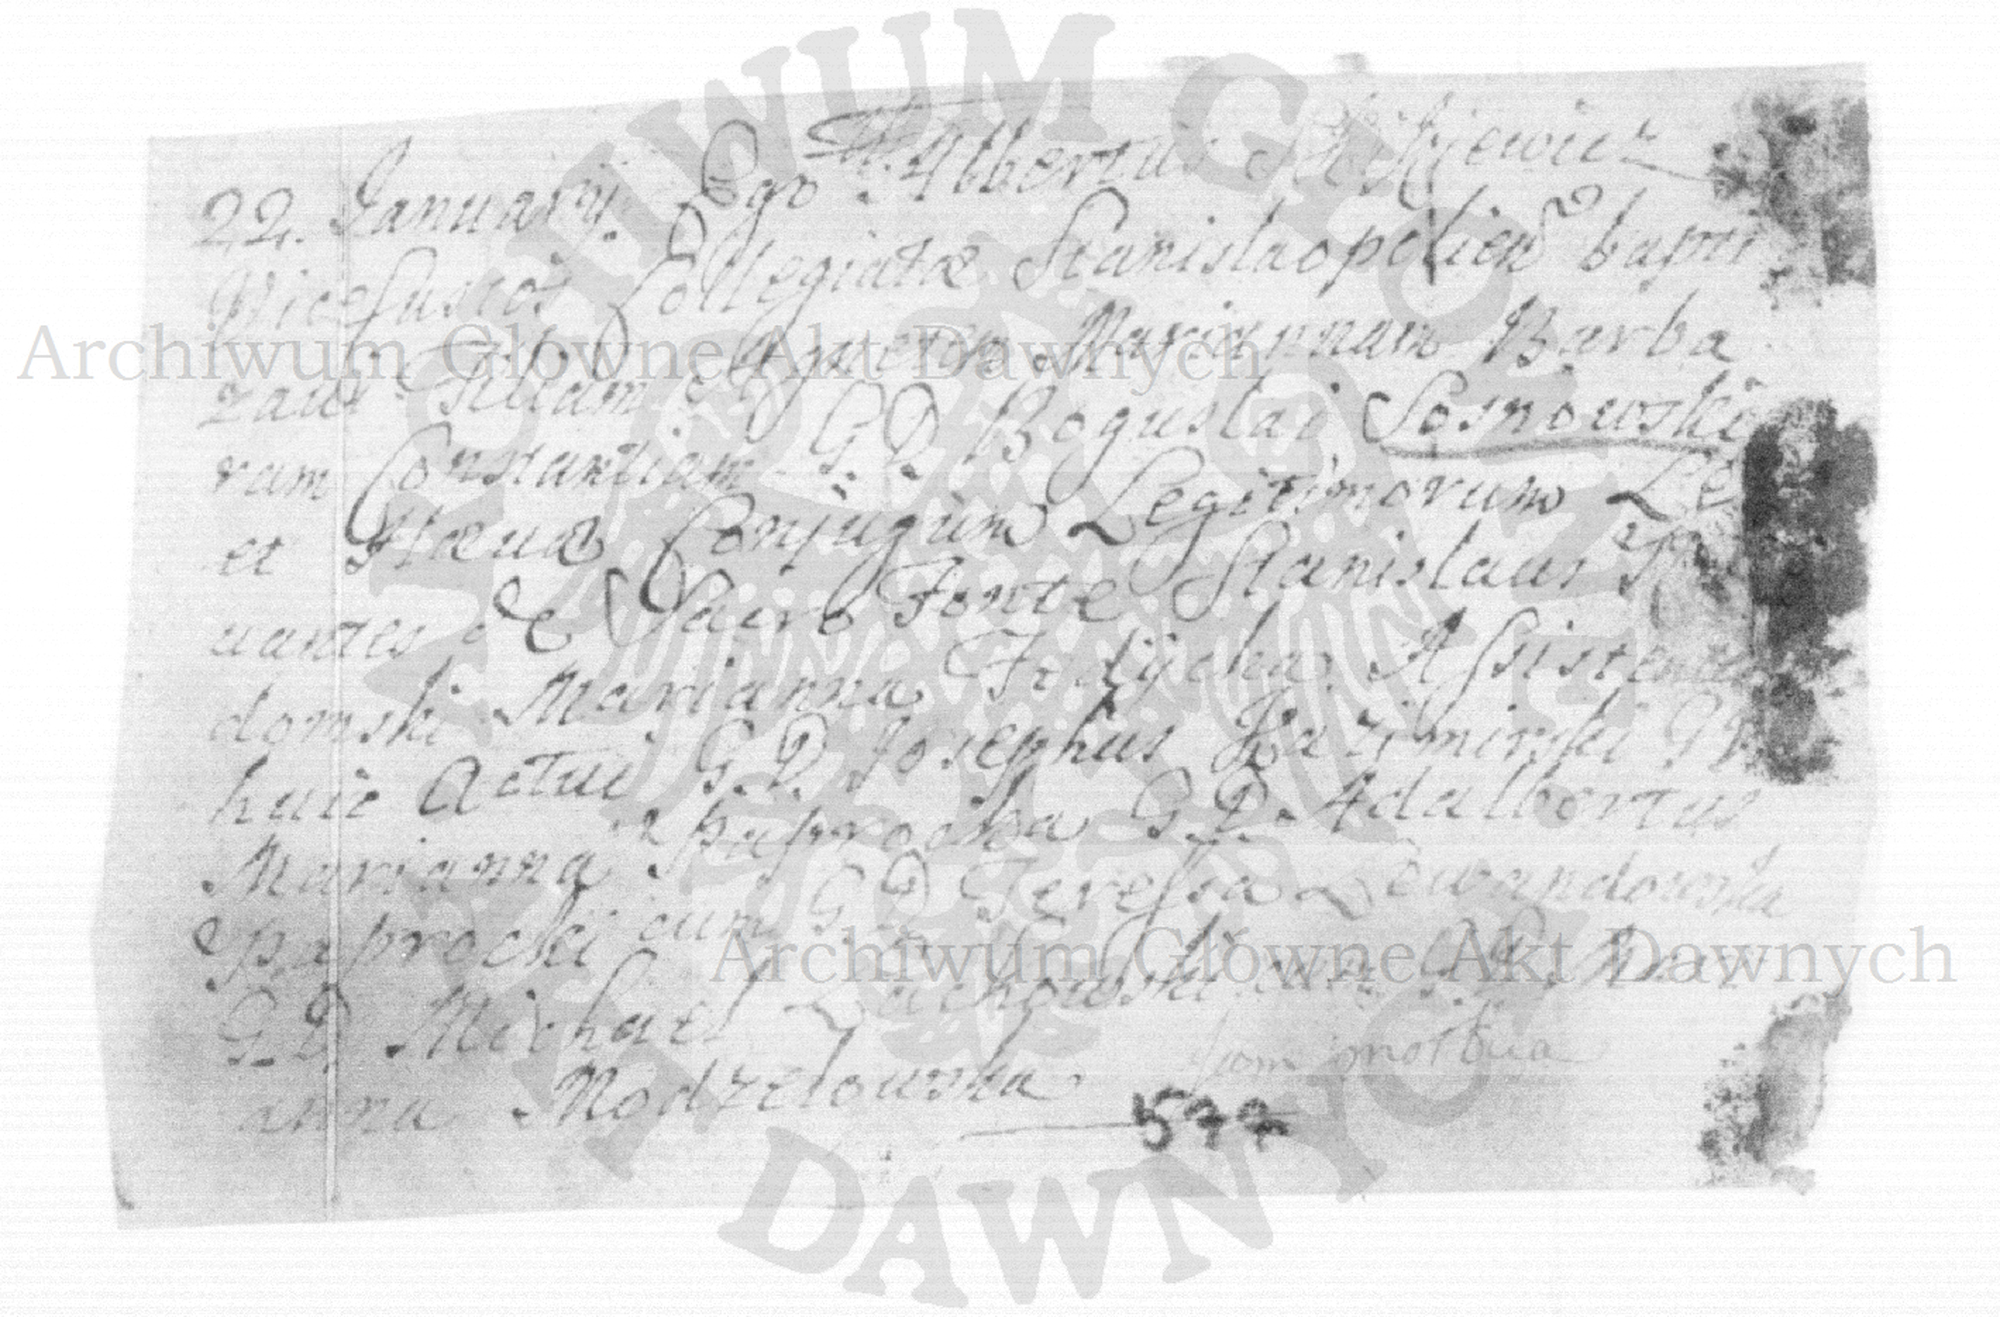 22. January. Ego Albertus
Vicecustos Collegiatæ Stanislaopolien bapti
zavi Filiam Agnetem Mariannam Barba
ram Constantiam G. D. Boguslai Sosnowski
et Conjugum Legitimorum Le
vantes de Sacro Fonte Stanislaus
domski Marianna Assistentes
huic Actui G. D. Josephus Kazimirski G D
Marianna Paprocka G. D. Adalbertus
Paprocki cum G D Teressa Lewandowska
G. D Michael Lachowski cum G D Mari
anna Modzelowska
jam mortua
577
ARCHIWUM GŁÓWNE AKT DAWNYCH
Archiwum Glowne Akt Dawnych
Archiwum Glowne Akt Dawnych